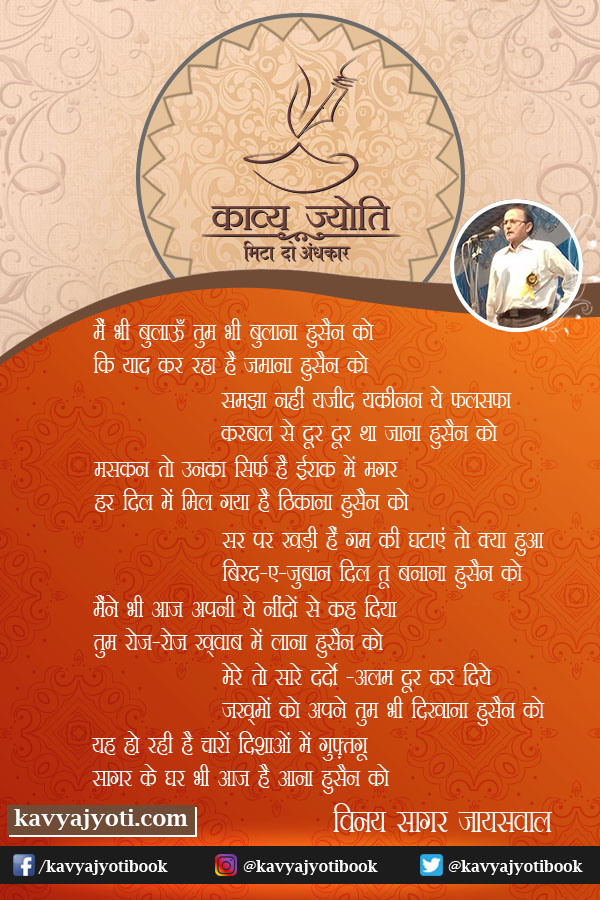 काव्य ज्योति
मिटा दो अंधकार
मैं भी बुलाऊँ तुम भी बुलाना हुसैन को
कि याद कर रहा है जमाना हुसैन को
समझा नहीं यजीद यकीनन ये फलसफा
करबल से दूर दूर था जाना हुसैन को
मसकन तो उनका सिर्फ है ईराक में मगर
हर दिल में मिल गया है ठिकाना हुसैन को
सर पर खड़ी हैं गम की घटाएं तो क्या हुआ
बिरद-ए-जुबान दिल तू बनाना हुसैन को
मैंने भी आज अपनी ये नींदों से कह दिया
तुम रोज-रोज ख़्वाब में लाना हुसैन को
मेरे तो सारे दर्दो -अलम दूर कर दिये
जख़्मों को अपने तुम भी दिखाना हुसैन को
यह हो रही है चारों दिशाओं में गुफ़्तगू
सागर के घर भी आज है आना हुसैन को
विनय सागर जायसवाल
kavyajyoti.com
/kavyajyotibook @kavyajyotibook @kavyajyotibook